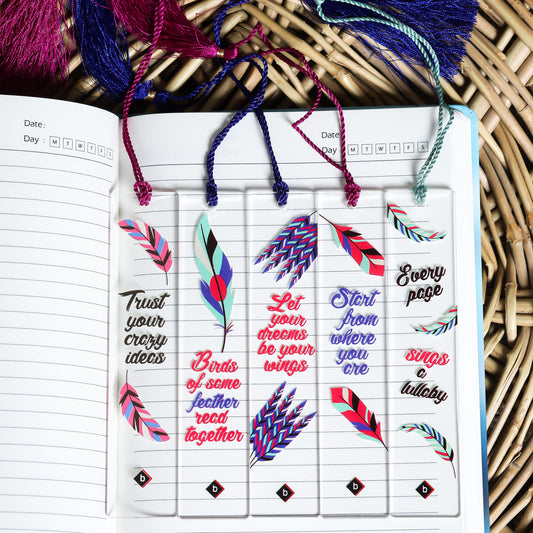 Date :
Day : M T W T F S
Date :
Day : M T W T F S
Trust
your
crazy
ideas
b
Birds
of some
feather
read
together
b
Let
your
dreams
be your
wings
b
Start
from
where
you
are
b
Every
page
sings
a
lullaby
b